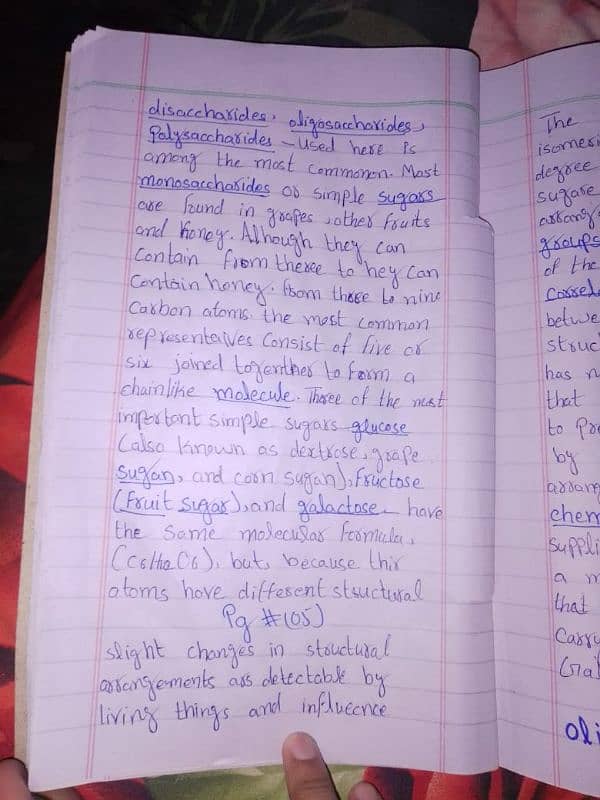 disaccharides, oligosaccharides,
Polysaccharides - used here is
among the most commonon. Most
monosaccharides or simple sugars
are found in grapes, other fruits
and honey. Although they can
contain from theree to hey can
contain honey. from three to nine
Carbon atoms. the most common
representaives consist of five or
six joined togenther to form a
chainlike molecule. Three of the most
important simple sugars glucose
(also known as dextrose, grape
sugan, and corn sugan), Fructose
(fruit sugar), and galactose have
the same molecular formula,
(C6H12O6), but, because thir
atoms have different structural
Pg #(05)
slight changes in structural
arrangements ars detectable by
living things and influence
The
isomeri
degree
sugare
arrang
groups
of the
betwe
struc
has n
that
to Pro
by
arrang
chem
Suppli
a m
that
Carry
oli